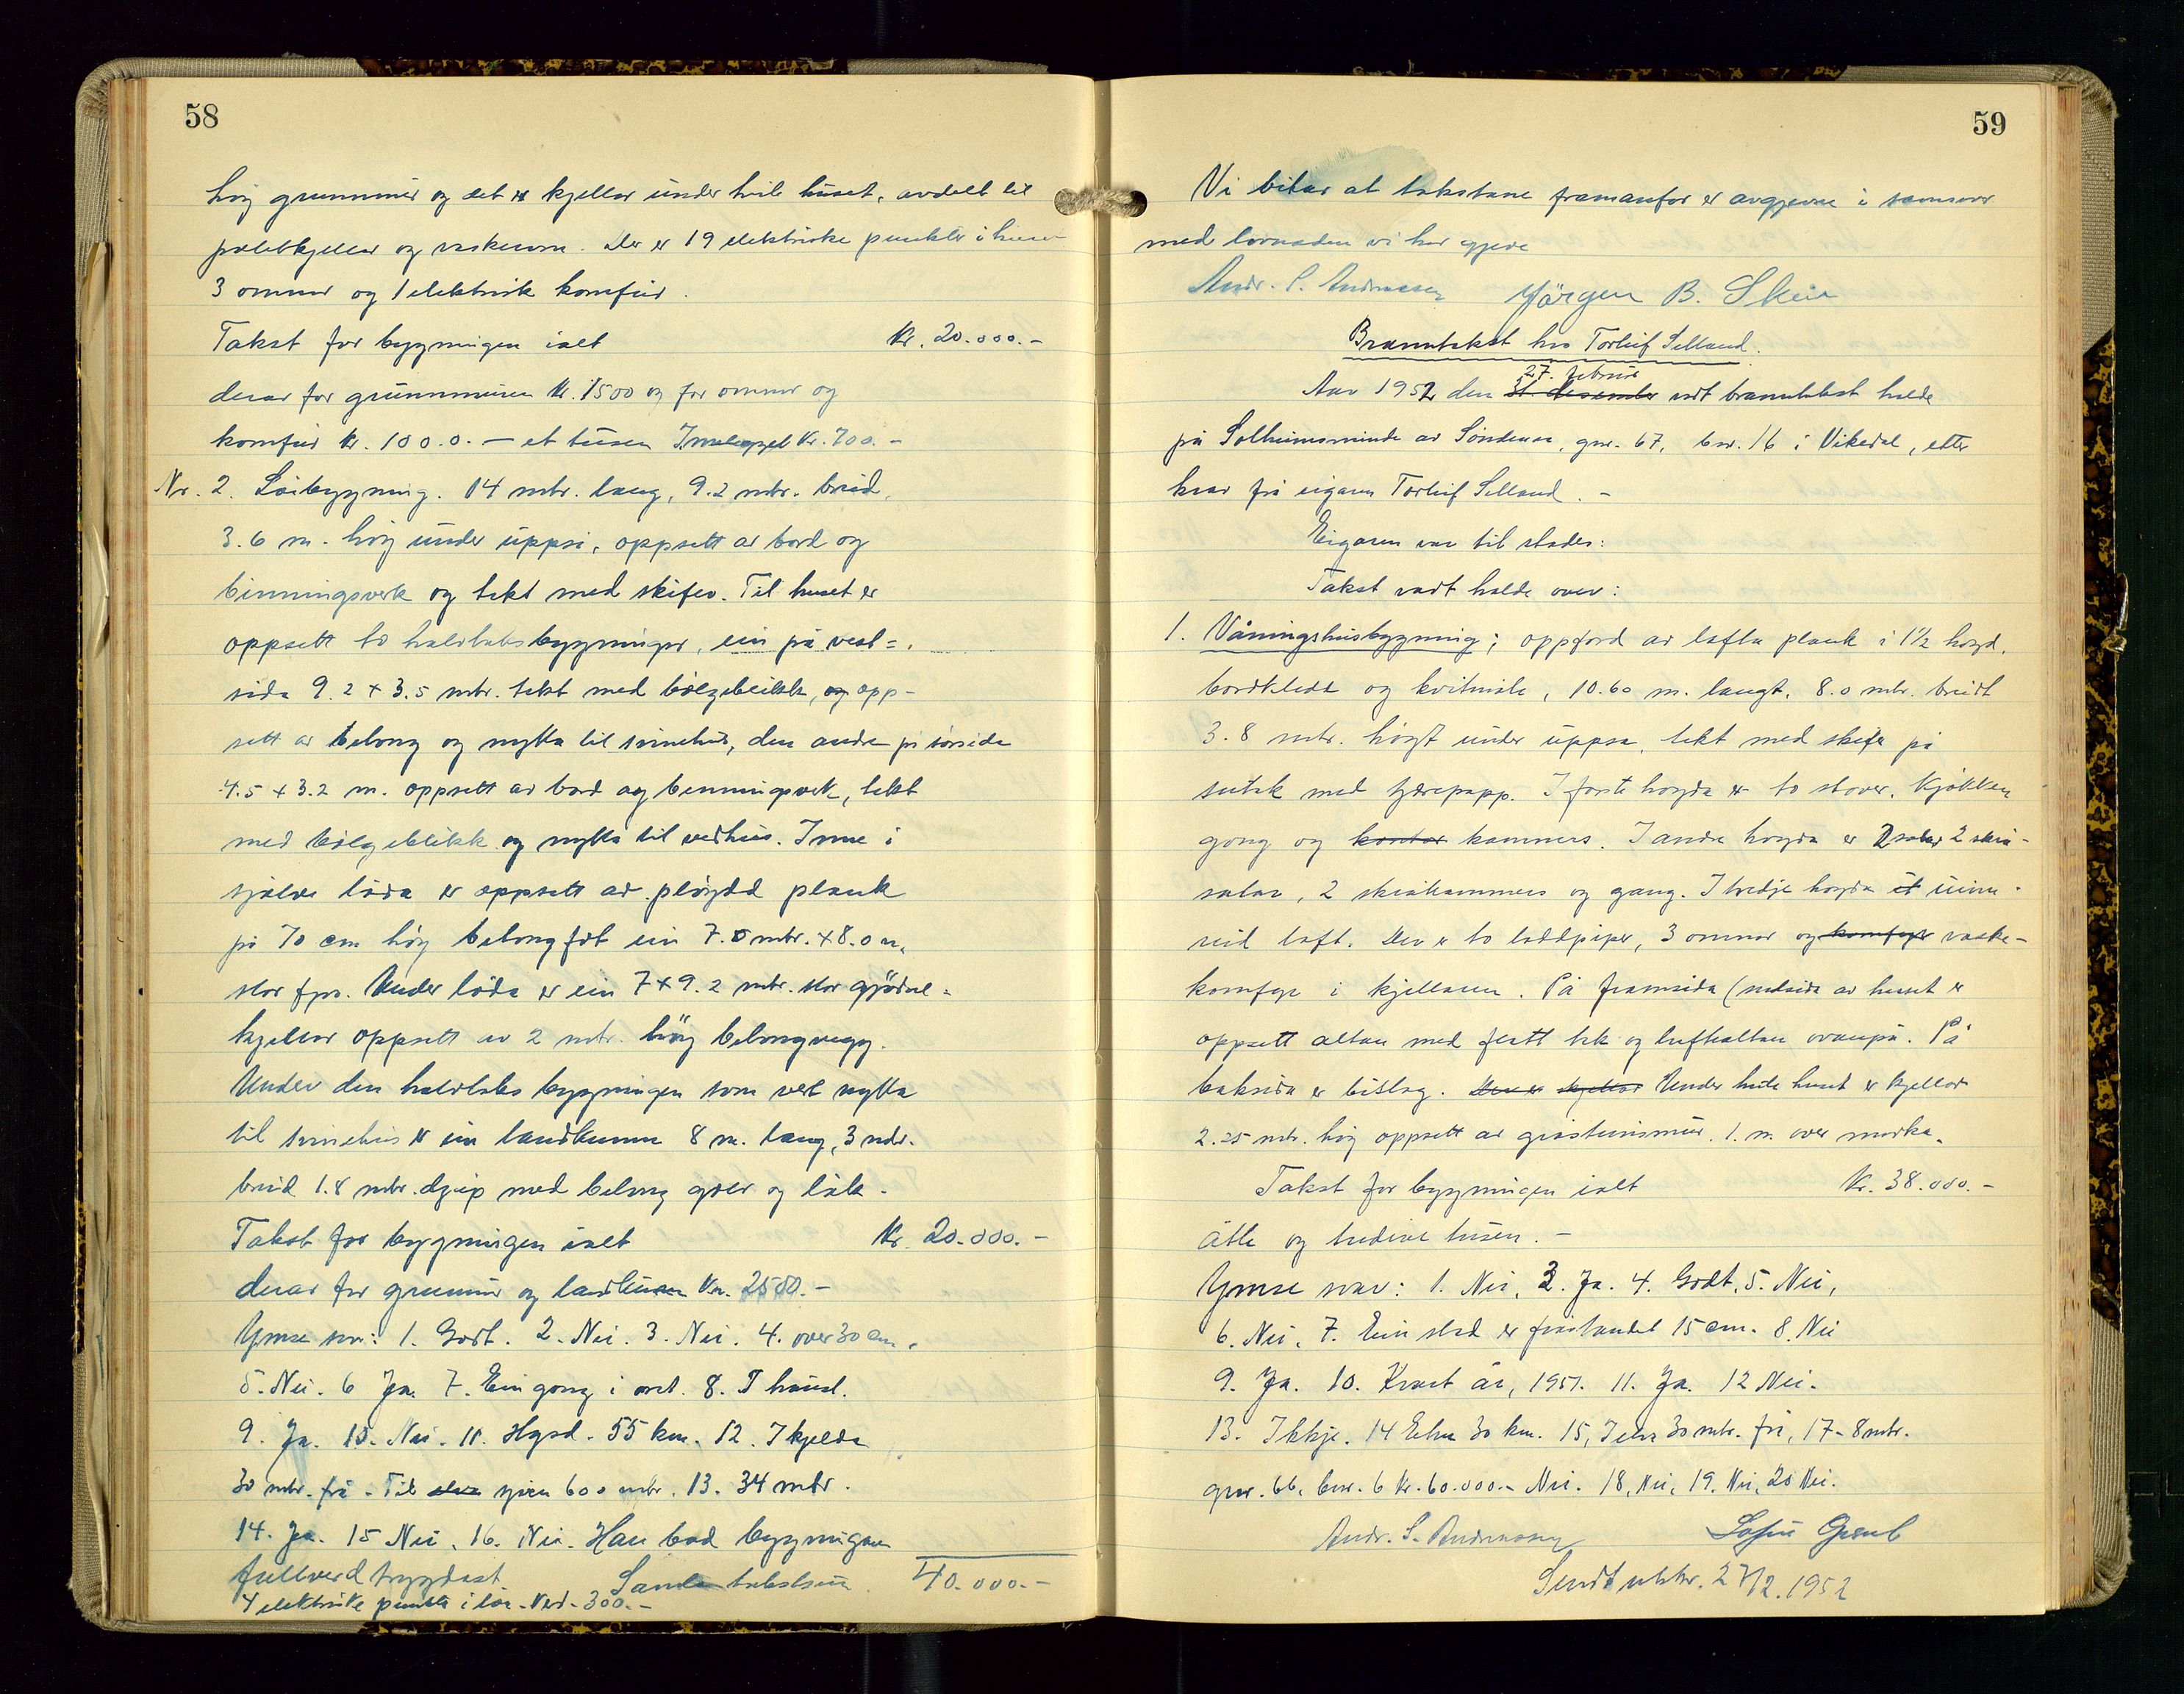 58
høg grunnmur og det er kjellar under heile huset, avdelt til
potetkjellar og vaskerom. Der er 19 elektriske punkter i huset
3 omnar og 1 elektrisk komfur.
Takst for bygningen ialt Kr. 20.000.-
derav for grunnmuren Kr. 1500 og for omnar og
komfur Kr. 1000.- et tusen Innlagt el Kr. 700.-
Nr. 2. Löebygning. 14 mtr. lang, 9.2 mtr. breid,
3.6 m. høg under uppsi, oppsett av bord og
binningsverk og tekt med skifer. Til huset er
oppsett to halvtaksbygninger, ein på vest=
sida 9.2 + 3.5 mtr. tekt med bölgeblikk, og opp-
sett av betong og nytta til svinehus, den andre på sørsida
4.5 + 3.2 m. oppsett av bord og binningsverk, tekt
med bölgeblikk og nytta til vedhus. Inne i
sjølve löda er oppsett av pløygdd plank
på 70 cm høg betongfot ein 7.0 mtr. + 8.0 m.
stor fjos. Under löda er ein 7 + 9.2 mtr. stor gjödsel=
kjellar oppsett av 2 mtr. höig betongvegg.
Under den halvtaks bygningen som vert nytta
til svinehus er ein landkumme 8 m. lang, 3 mtr.
breid 1.8 mtr. djup med betong golv og lok.
Takst for bygningen ialt Kr. 20.000.-
derav for grunnmur og landkum Kr. 2500.-
Ymse svar: 1. Godt. 2. Nei. 3. Nei. 4. over 30 cm.
5. Nei. 6 Ja. 7. Ein gong i året. 8. I haust.
9. Ja. 10. Nei. 11. Hgsd. 55 km. 12. I kjelda
30 mtr. frå. Til elva sjøen 600 mtr. 13. 34 mtr.
14. Ja. 15 Nei. 16. Nei. Han bad bygningane
fullverdtrygdast Samla takstsum 40.000.-
4 elektriske punkter i löa. Verd. 300.-
59
Vi vitar at takstane framanfor er avgjevne i samsvar
med lovnaden vi har gjeve
Andr. S. Andreassen Jörgen B. Skeie
Branntakst hos Torleif Selland.
27. februar
Aar 1952 den 31 desember vart branntakst halde
på Solheimsminde av Söndenaa, gnr. 67, bnr. 16 i Vikedal, etter
krav frå eigaren Torleif Selland. -
Eigaren var til stades:
Takst vart halde over:
1. Våningshusbygning; oppførd av lafta plank i 1½ høgd.
bordkledt og kvitmåla, 10.60 m. langt, 8.0 mtr. breidt
3.8 mtr. högt under uppsa, tekt med skifer på
sutak med tjærepapp. I første høgda er to stover. Kjøkken
gong og kontor kammers. I andre høgda er 2 salar 2 skrå-
salar, 2 skråkammers og gang. I tredje høgda et uinn-
reid loft. Der er to loddpiper, 3 omnar og komfyr vaske-
komfyr i kjellaren. På framsida (sudsida av huset er
oppsett altan med flatt tak og luftaltan ovanpå. På
baksida er bislag. Der er kjellar Under heile huset er kjellar
2.25 mtr. høg oppsett av gråsteinsmur. 1. m. over marka.
Takst for bygningen ialt Kr. 38.000.-
åtte og tredive tusen. -
Ymse svar: 1. Nei, 3. Ja. 4. Godt. 5. Nei,
6. Nei, 7. Ein stad er fråstandet 15 cm. 8. Nei
9. Ja. 10. Kvart år, 1951. 11. Ja. 12 Nei.
13. Ikkje. 14 Elva 30 km. 15, I elva 30 mtr. frå, 17- 8 mtr.
gnr. 66, bnr. 6 Kr. 60.000.- Nei. 18, Nei, 19. Nei, 20 Nei.
Andr. S. Andreassen
Sendt utskr. 27/2. 1952